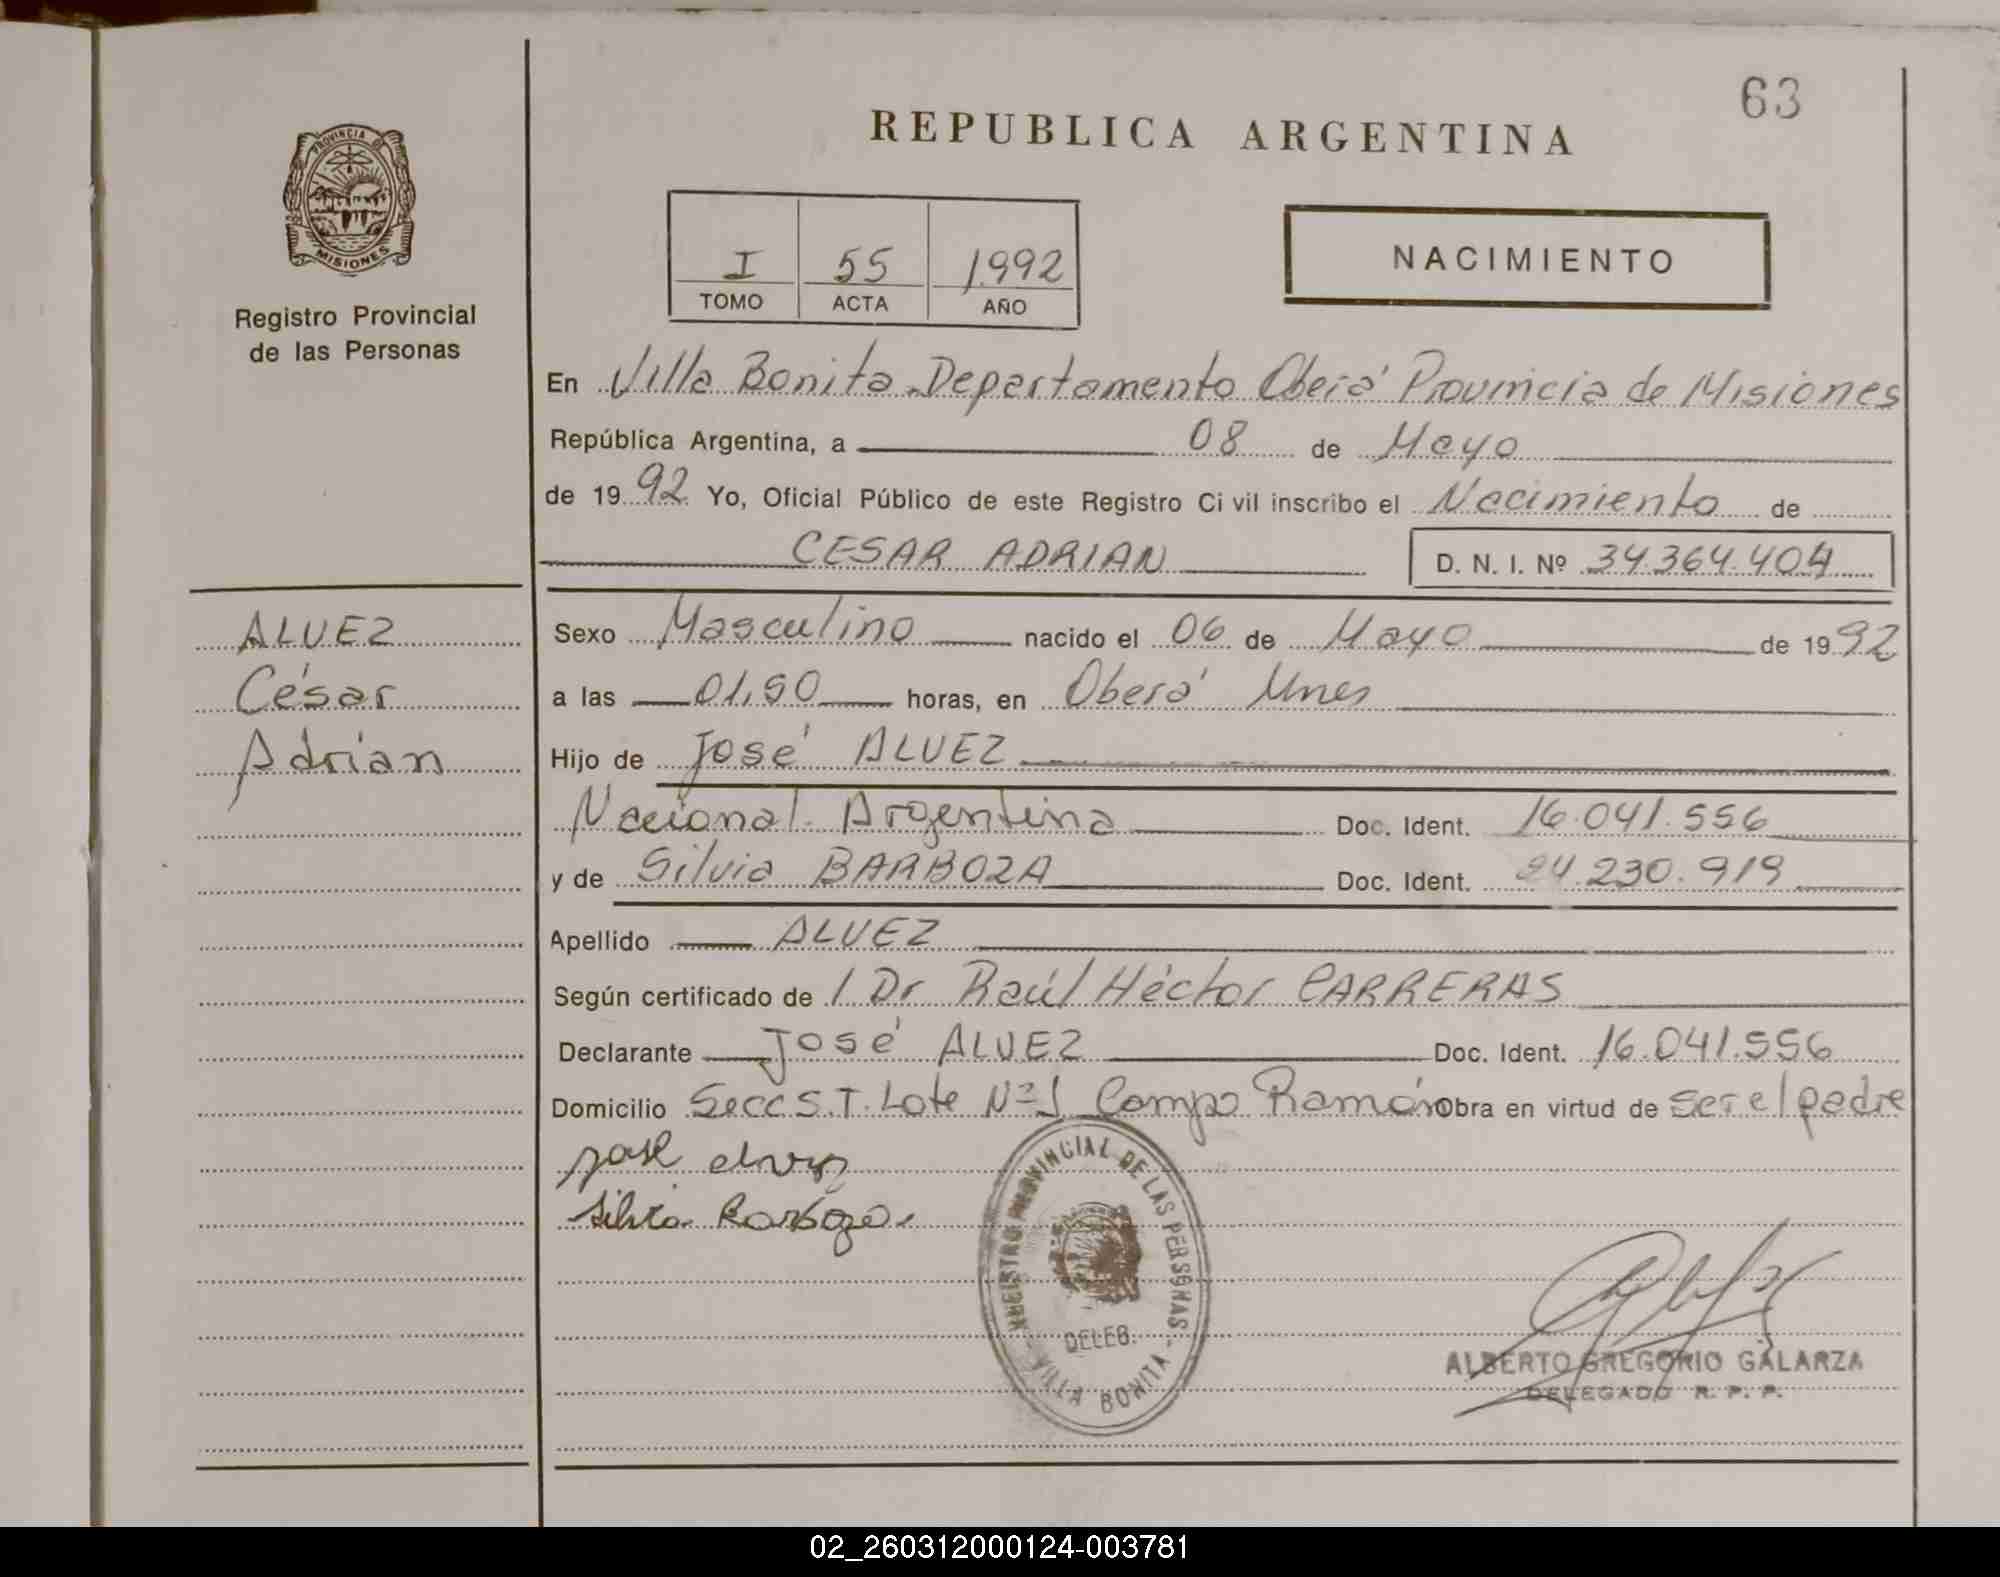 63
REPUBLICA ARGENTINA
PROVINCIA DE
MISIONES
Registro Provincial
de las Personas
I 55 1992
TOMO ACTA AÑO
NACIMIENTO
En Villa Bonita Departamento Oberá Provincia de Misiones
República Argentina, a 08 de Mayo
de 1992 Yo, Oficial Público de este Registro Civil inscribo el Nacimiento de
CESAR ADRIAN D. N. I. Nº 34.364.404
ALVEZ
César
Adrian
Sexo Masculino nacido el 06 de Mayo de 1992
a las 01,50 horas, en Oberá Mnes
Hijo de José ALVEZ
Nacional. Argentina Doc. Ident. 16.041.556
y de Silvia BARBOZA Doc. Ident. 24.230.919
Apellido ALVEZ
Según certificado de / Dr Raúl Héctor CARRERAS
Declarante José ALVEZ Doc. Ident. 16.041.556
Domicilio Secc S.T. Lote Nº 1 Campo Ramón Obra en virtud de ser el padre
jose alvez
Silvia Barboza
REGISTRO PROVINCIAL DE LAS PERSONAS - VILLA BONITA -
DELEG.
ALBERTO GREGORIO GALARZA
DELEGADO R. P. P.
02_260312000124-003781